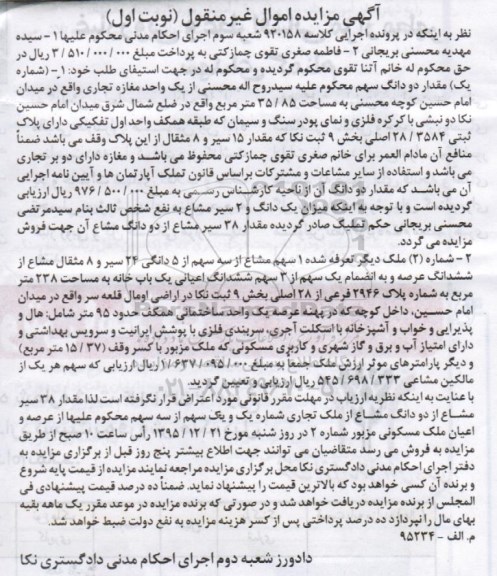 آگهی مزایده اموال غیرمنقول (نوبت اول)
نظر به اینکه در پرونده اجرایی کلاسه ۹۲۰۱۵۸ شعبه سوم اجرای احکام مدنی محکوم علیها ۱ - سیده
مهدیه محسنی بریجانی ۲ - فاطمه صغری تقوی جمازکتی به پرداخت مبلغ ۳/۵۱۰/۰۰۰/۰۰۰ ریال در
حق محکوم له خانم آتنا تقوی محکوم گردیده و محکوم له در جهت استیفای طلب خود: ۱ـ (شماره
یک) مقدار دو دانگ سهم محکوم علیه سیدروح اله محسنی از یک واحد مغازه تجاری واقع در میدان
امام حسین کوچه محسنی به مساحت ۳۵/۸۵ متر مربع واقع در ضلع شمال شرق میدان امام حسین
نکا دو نبشی با کرکره فلزی و نمای پودر سنگ و سیمان که طبقه همکف واحد اول تفکیکی دارای پلاک
ثبتی ۲۸/۳۵۸۴ اصلی بخش ۹ ثبت نکا که مقدار ۱۵ سیر و ۸ مثقال از این پلاک وقف می باشد ضمناً
منافع آن مادام العمر برای خانم صغری تقوی جمازکتی محفوظ می باشد و مغازه دارای دو بر تجاری
می باشد و استفاده از سایر مشاعات و مشترکات براساس قانون تملک آپارتمان ها و آیین نامه اجرایی
آن می باشد که مقدار دو دانگ آن از ناحیه کارشناس رسمی به مبلغ ۹۷۶/۵۰۰/۰۰۰ ریال ارزیابی
گردیده است و با توجه به اینکه میزان یک دانگ و ۲ سیر مشاع به نفع شخص ثالث بنام سیدمرتضی
محسنی بریجانی حکم تملیک صادر گردیده مقدار ۳۸ سیر مشاع از دو دانگ مشاع آن جهت فروش
مزایده می گردد.
۲ - شماره (۲) ملک دیگر تعرفه شده ۱ سهم مشاع از سه سهم از ۵ دانگی ۲۴ سیر و ۸ مثقال مشاع از
ششدانگ عرصه و به انضمام یک سهم از ۳ سهم ششدانگ اعیانی یک باب خانه به مساحت ۲۳۸ متر
مربع به شماره پلاک ۲۹۴۶ فرعی از ۲۸ اصلی بخش ۹ ثبت نکا در اراضی اومال قلعه سر واقع در میدان
امام حسین، داخل کوچه که در پهنه عرصه یک واحد ساختمانی همکف حدود ۹۵ متر شامل: هال و
پذیرایی و خواب و آشپزخانه با اسکلت آجری، سربندی فلزی با پوشش ایرانیت و سرویس بهداشتی و
دارای امتیاز آب و برق و گاز شهری و کاربری مسکونی که ملک مزبور با کسر وقف (۱۵/۳۷ متر مربع)
و دیگر پارامترهای موثر ارزش ملک جمعاً به مبلغ ۱/۶۳۷/۰۹۵/۰۰۰ ریال ارزیابی که سهم هر یک از
مالکین مشاعی ۵۴۵/۶۹۸/۳۳۳ ریال ارزیابی و تعیین گردید.
با عنایت به اینکه نظریه ارزیاب در مهلت مقرر قانونی مورد اعتراض قرار نگرفته است لذا مقدار ۳۸ سیر
مشاع از دو دانگ مشاع از ملک تجاری شماره یک و یک سهم از سه سهم محکوم علیها از عرصه و
اعیان ملک مسکونی مزبور شماره ۲ در روز شنبه مورخ ۱۳۹۵/۱۲/۲۱ رأس ساعت ۱۰ صبح از طریق
مزایده به فروش می رسد متقاضیان می توانند جهت اطلاع بیشتر پنج روز قبل از برگزاری مزایده به
دفتر اجرای احکام مدنی دادگستری نکا محل برگزاری مزایده مراجعه نمایند مزایده از قیمت پایه شروع
و برنده آن کسی خواهد بود که بالاترین قیمت را پیشنهاد نماید. ضمناً ده درصد قیمت پیشنهادی فی
المجلس از برنده مزایده دریافت خواهد شد و در صورتی که برنده مزایده در موعد مقرر یک ماهه بقیه
بهای مال را نپردازد ده درصد پرداختی پس از کسر هزینه مزایده به نفع دولت ضبط خواهد شد.
م. الف - ۹۵۲۳۴
دادورز شعبه دوم اجرای احکام مدنی دادگستری نکا